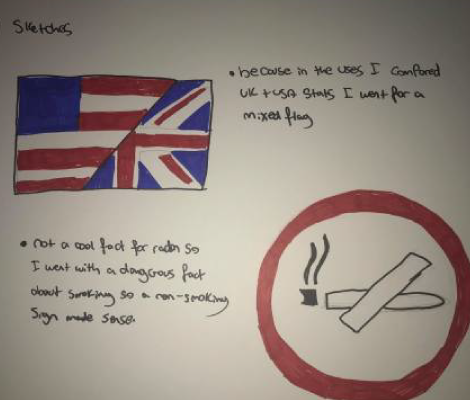 Sketches
• because in the uses I compared
UK + USA stats I went for a
mixed flag
• not a cool fact for radon so
I went with a dangerous fact
about smoking so a non-smoking
sign made sense.